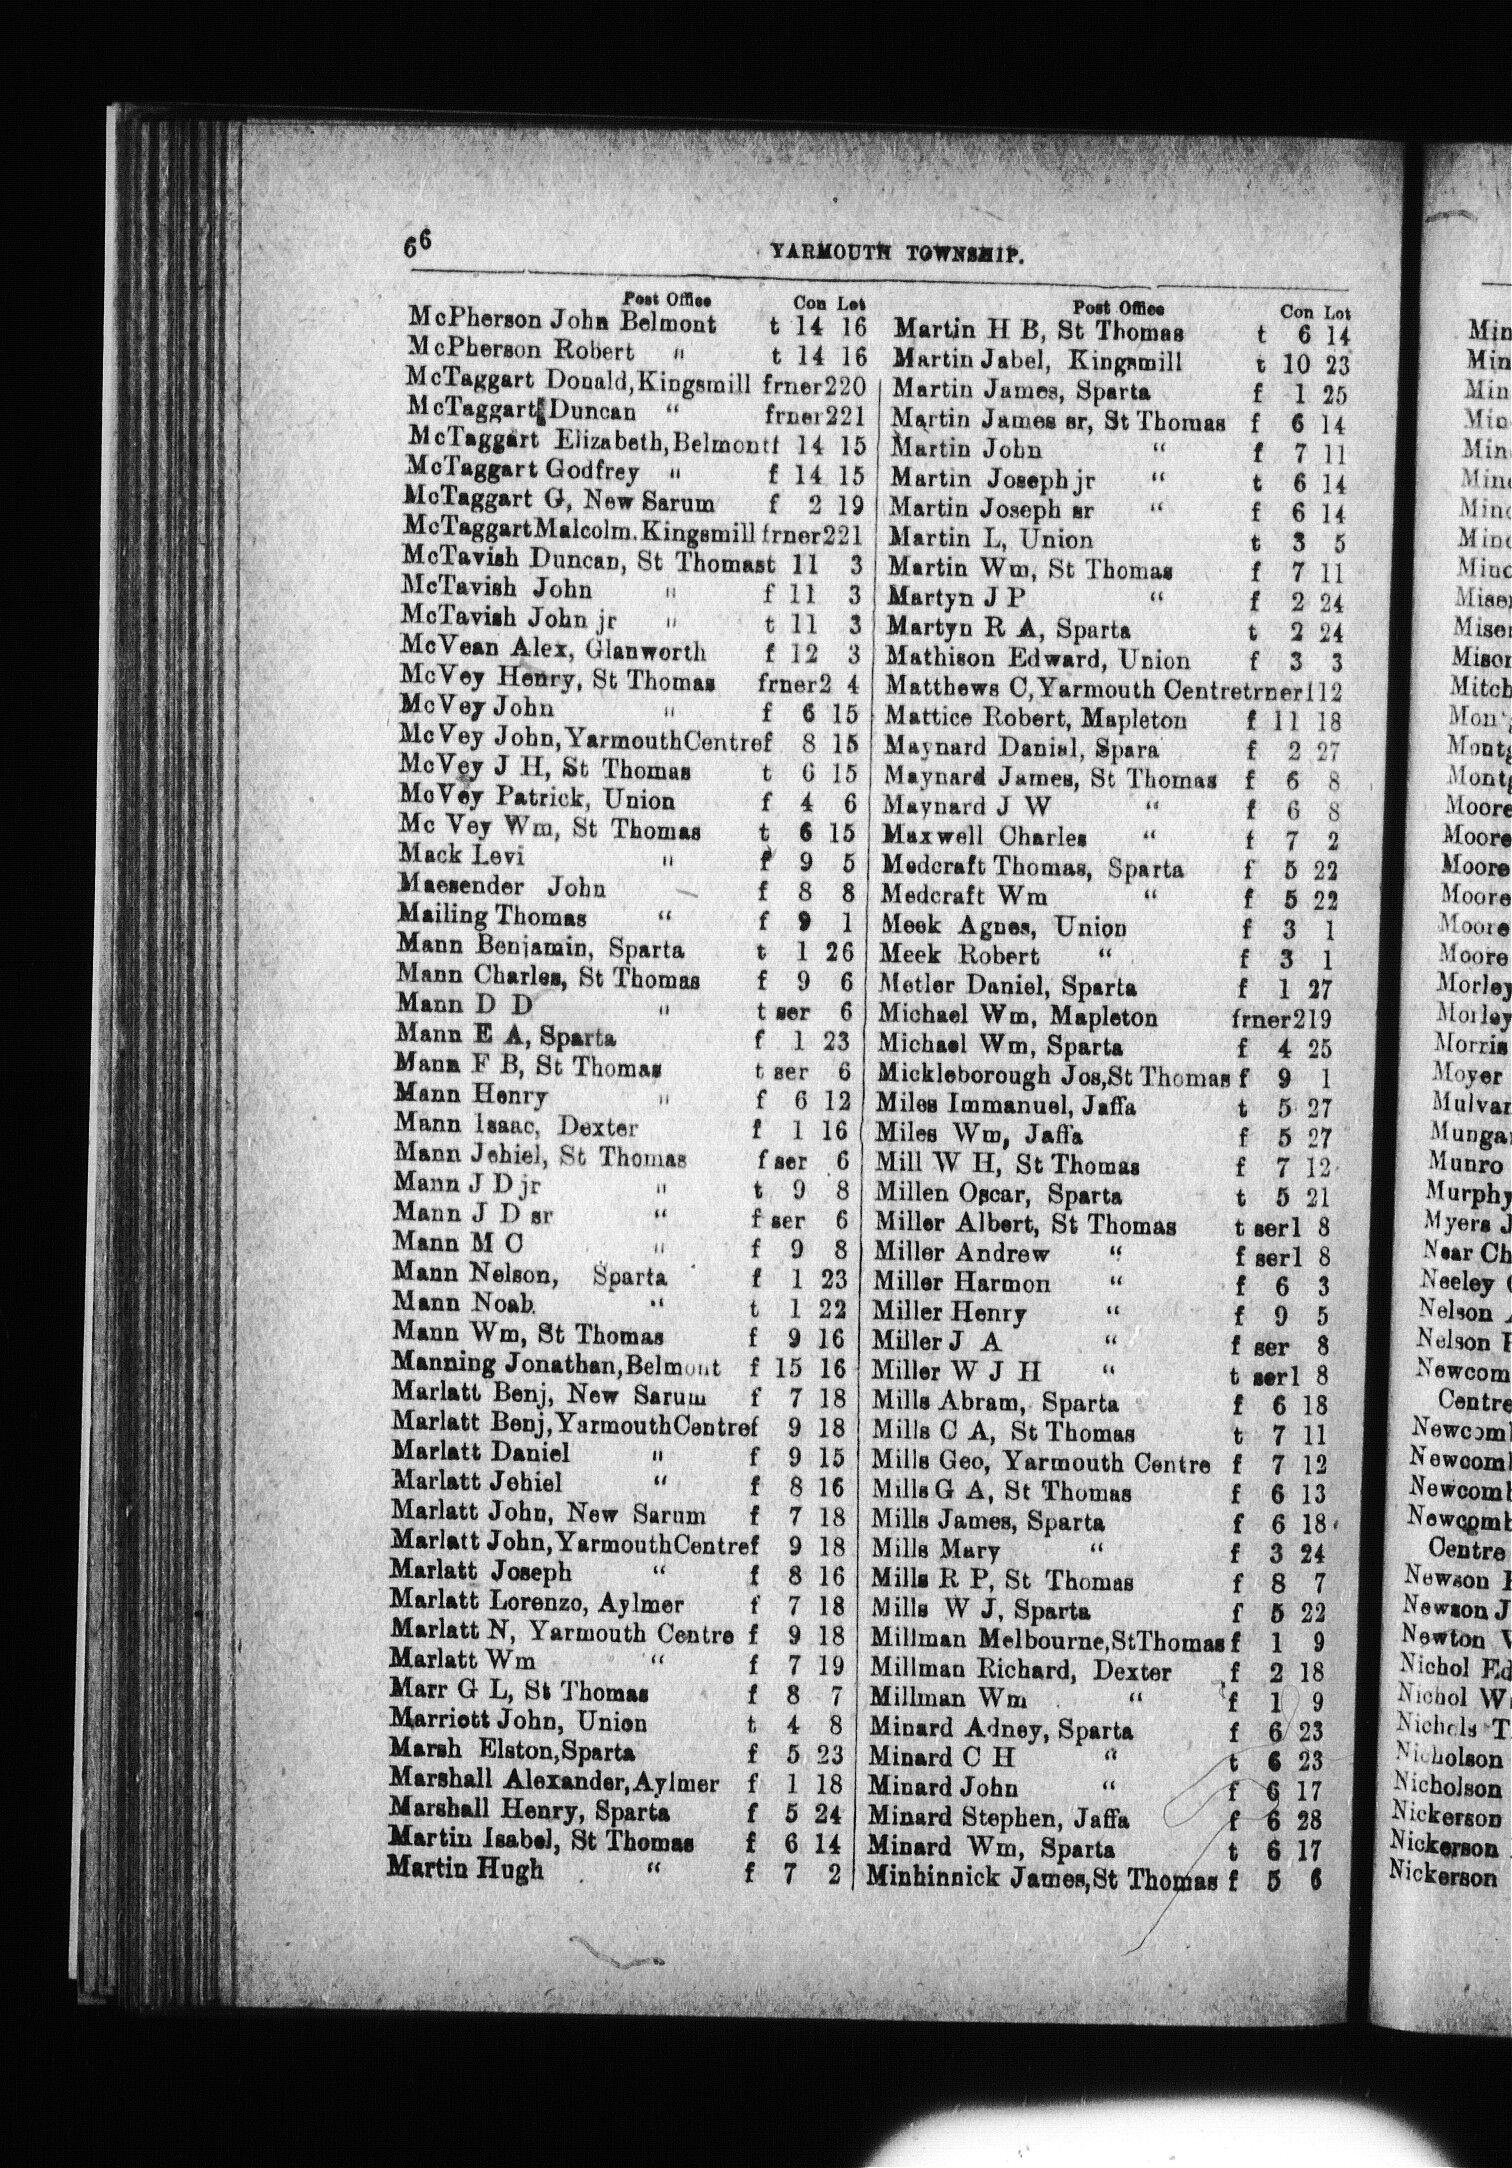 66
YARMOUTH TOWNSHIP.
Post Office Con Lot
McPherson John Belmont t 14 16
McPherson Robert " t 14 16
McTaggart Donald, Kingsmill frner220
McTaggart Duncan " frner221
McTaggart Elizabeth, Belmont f 14 15
McTaggart Godfrey " f 14 15
McTaggart G, New Sarum f 2 19
McTaggart Malcolm. Kingsmill frner221
McTavish Duncan, St Thomas t 11 3
McTavish John " f 11 3
McTavish John jr " t 11 3
McVean Alex, Glanworth f 12 3
McVey Henry, St Thomas frner2 4
McVey John " f 6 15
McVey John, Yarmouth Centre f 8 15
McVey J H, St Thomas t 6 15
McVey Patrick, Union f 4 6
Mc Vey Wm, St Thomas t 6 15
Mack Levi " f 9 5
Maesender John f 8 8
Mailing Thomas " f 9 1
Mann Benjamin, Sparta t 1 26
Mann Charles, St Thomas f 9 6
Mann D D " t ser 6
Mann E A, Sparta f 1 23
Mann F B, St Thomas t ser 6
Mann Henry " f 6 12
Mann Isaac, Dexter f 1 16
Mann Jehiel, St Thomas f ser 6
Mann J D jr " t 9 8
Mann J D sr " f ser 6
Mann M C " f 9 8
Mann Nelson, Sparta f 1 23
Mann Noah " t 1 22
Mann Wm, St Thomas f 9 16
Manning Jonathan, Belmont f 15 16
Marlatt Benj, New Sarum f 7 18
Marlatt Benj, Yarmouth Centre f 9 18
Marlatt Daniel " f 9 15
Marlatt Jehiel " f 8 16
Marlatt John, New Sarum f 7 18
Marlatt John, Yarmouth Centre f 9 18
Marlatt Joseph " f 8 16
Marlatt Lorenzo, Aylmer f 7 18
Marlatt N, Yarmouth Centre f 9 18
Marlatt Wm " f 7 19
Marr G L, St Thomas f 8 7
Marriott John, Union t 4 8
Marsh Elston, Sparta f 5 23
Marshall Alexander, Aylmer f 1 18
Marshall Henry, Sparta f 5 24
Martin Isabel, St Thomas f 6 14
Martin Hugh " f 7 2
Post Office Con Lot
Martin H B, St Thomas t 6 14
Martin Jabel, Kingsmill t 10 23
Martin James, Sparta f 1 25
Martin James sr, St Thomas f 6 14
Martin John " f 7 11
Martin Joseph jr " t 6 14
Martin Joseph sr " f 6 14
Martin L, Union t 3 5
Martin Wm, St Thomas f 7 11
Martyn J P " f 2 24
Martyn R A, Sparta t 2 24
Mathison Edward, Union f 3 3
Matthews C, Yarmouth Centre trner112
Mattice Robert, Mapleton f 11 18
Maynard Danial, Spara f 2 27
Maynard James, St Thomas f 6 8
Maynard J W " f 6 8
Maxwell Charles " f 7 2
Medcraft Thomas, Sparta f 5 22
Medcraft Wm " f 5 22
Meek Agnes, Union f 3 1
Meek Robert " f 3 1
Metler Daniel, Sparta f 1 27
Michael Wm, Mapleton frner219
Michael Wm, Sparta f 4 25
Mickleborough Jos, St Thomas f 9 1
Miles Immanuel, Jaffa t 5 27
Miles Wm, Jaffa f 5 27
Mill W H, St Thomas f 7 12
Millen Oscar, Sparta t 5 21
Miller Albert, St Thomas t ser1 8
Miller Andrew " f ser1 8
Miller Harmon " f 6 3
Miller Henry " f 9 5
Miller J A " f ser 8
Miller W J H " t ser1 8
Mills Abram, Sparta f 6 18
Mills C A, St Thomas t 7 11
Mills Geo, Yarmouth Centre f 7 12
Mills G A, St Thomas f 6 13
Mills James, Sparta f 6 18
Mills Mary " f 3 24
Mills R P, St Thomas f 8 7
Mills W J, Sparta f 5 22
Millman Melbourne, St Thomas f 1 9
Millman Richard, Dexter f 2 18
Millman Wm " f 1 9
Minard Adney, Sparta f 6 23
Minard C H " t 6 23
Minard John " f 6 17
Minard Stephen, Jaffa f 6 28
Minard Wm, Sparta t 6 17
Minhinnick James, St Thomas f 5 6
Moore
Moore
Moore
Moore
Moore
Moore
Morley
Morley
Morris
Moyer
Munro
Murphy
Myers J
Near Ch
Neeley
Nelson
Nelson
Centre
Centre
Newson
Newson J
Newton
Nichol Ed
Nichol W
Nichols T
Nicholson
Nicholson
Nickerson
Nickerson
Nickerson